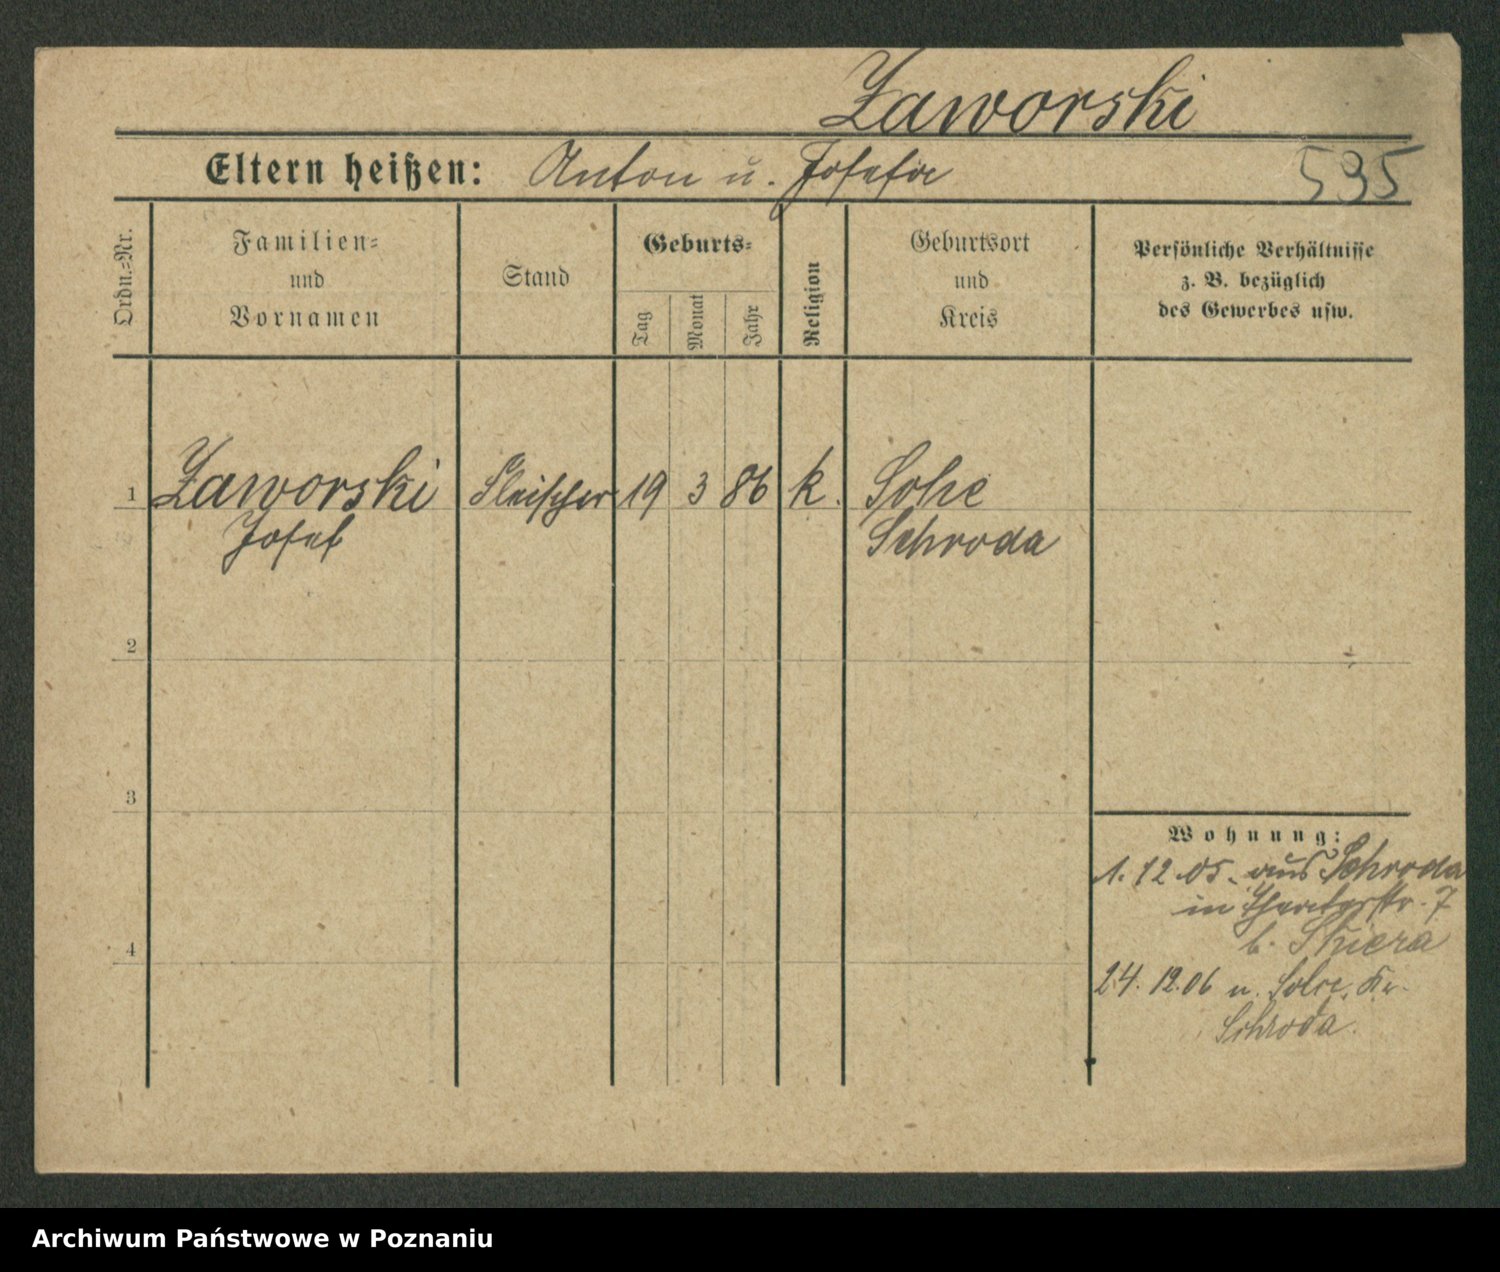 Zaworski
Eltern heißen: Anton u. Josefa
595
Ordn.-Nr.
Familien-
und
Vornamen
Stand
Geburts-
Tag
Monat
Jahr
Religion
Geburtsort
und
Kreis
Persönliche Verhältnisse
z. B. bezüglich
des Gewerbes usw.
1 Zaworski Fleischer 19 3 86 k.
Josef Schroda
2
3
Wohnung:
1. 12. 05. aus Schroda
in Theaterstr. 7
b. Skiera
4
24. 12. 06 n. Kr.
Schroda.
Archiwum Państwowe w Poznaniu